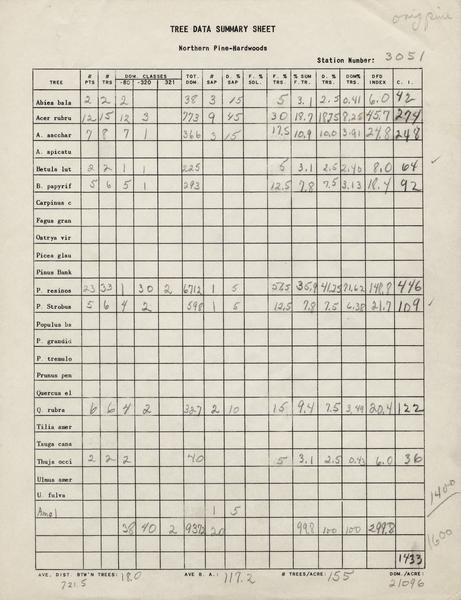 orig pine
TREE DATA SUMMARY SHEET
Northern Pine-Hardwoods
Station Number: 3051
TREE # PTS # TRS DOM. CLASSES -80 -320 321 TOT. DOM # SAP D. % SAP F. % SDL. F. % TRS. % SUM F. TR. D. % TRS. DOM% TRS. DFD INDEX C. I.
Abies bala 2 2 2 38 3 15 5 3.1 2.5 0.41 6.0 42
Acer rubru 12 15 12 3 773 9 45 30 18.7 18.75 8.25 45.7 274
A. sacchar 7 8 7 1 366 3 15 17.5 10.9 10.0 3.91 24.8 248
A. spicatu
Betula lut 2 2 1 1 225 5 3.1 2.5 2.40 8.0 64 ✓
B. papyrif 5 6 5 1 293 12.5 7.8 7.5 3.13 18.4 92
Carpinus c
Fagus gran
Ostrya vir
Picea glau
Pinus Bank
P. resinos 23 33 1 30 2 6712 1 5 57.5 35.9 41.25 71.62 148.8 446
P. Strobus 5 6 4 2 598 1 5 12.5 7.8 7.5 6.38 21.7 109 ✓
Populus ba
P. grandid
P. tremulo
Prunus pen
Quercus el
Q. rubra 6 6 4 2 327 2 10 15 9.4 7.5 3.49 20.4 122
Tilia amer
Tsuga cana
Thuja occi 2 2 2 40 5 3.1 2.5 0.43 6.0 36
Ulmus amer
U. fulva
Amel 1 5
38 40 2 9372 20 99.8 100 100 299.8
1400
1600
1433
AVE. DIST. BTW'N TREES: 18.0 AVE B. A.: 117.2 # TREES/ACRE: 155 DOM./ACRE:
721.5 21096